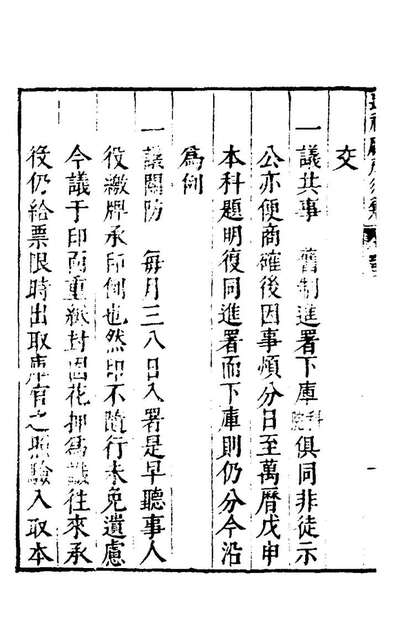 交
一議共事　舊制進署下庫科院俱同非徒示
公亦便商確後因事煩分日至萬曆戊申
本科題明復同進署而下庫則仍分今沿
爲例
一議關防　每月三八日入署是早聽事人
役繳牌承印例也然印不隨行未免遺慮
今議于印面重紙封固花押爲識往來承
役仍給票限時出取庫有之照驗入取本